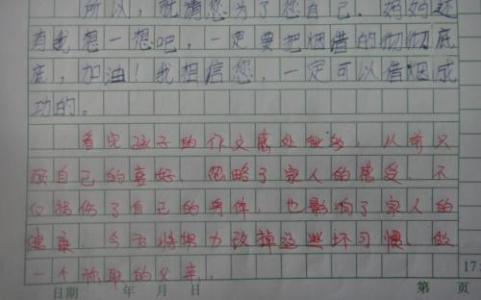 所以，就请您为了您自己、妈妈还
有我想一想吧，一定要把烟戒的彻彻底
底，加油！我相信您，一定可以借烟成
功的。
看完孩子的作文感处，从前只
顾自己的喜好，忽略了家人的感受，不
仅损伤了自己的身体，也影响了家人的
健康，今天将努力改掉这些坏习惯，做
一个称职的父亲。
17
日期 年 月 日 第 页